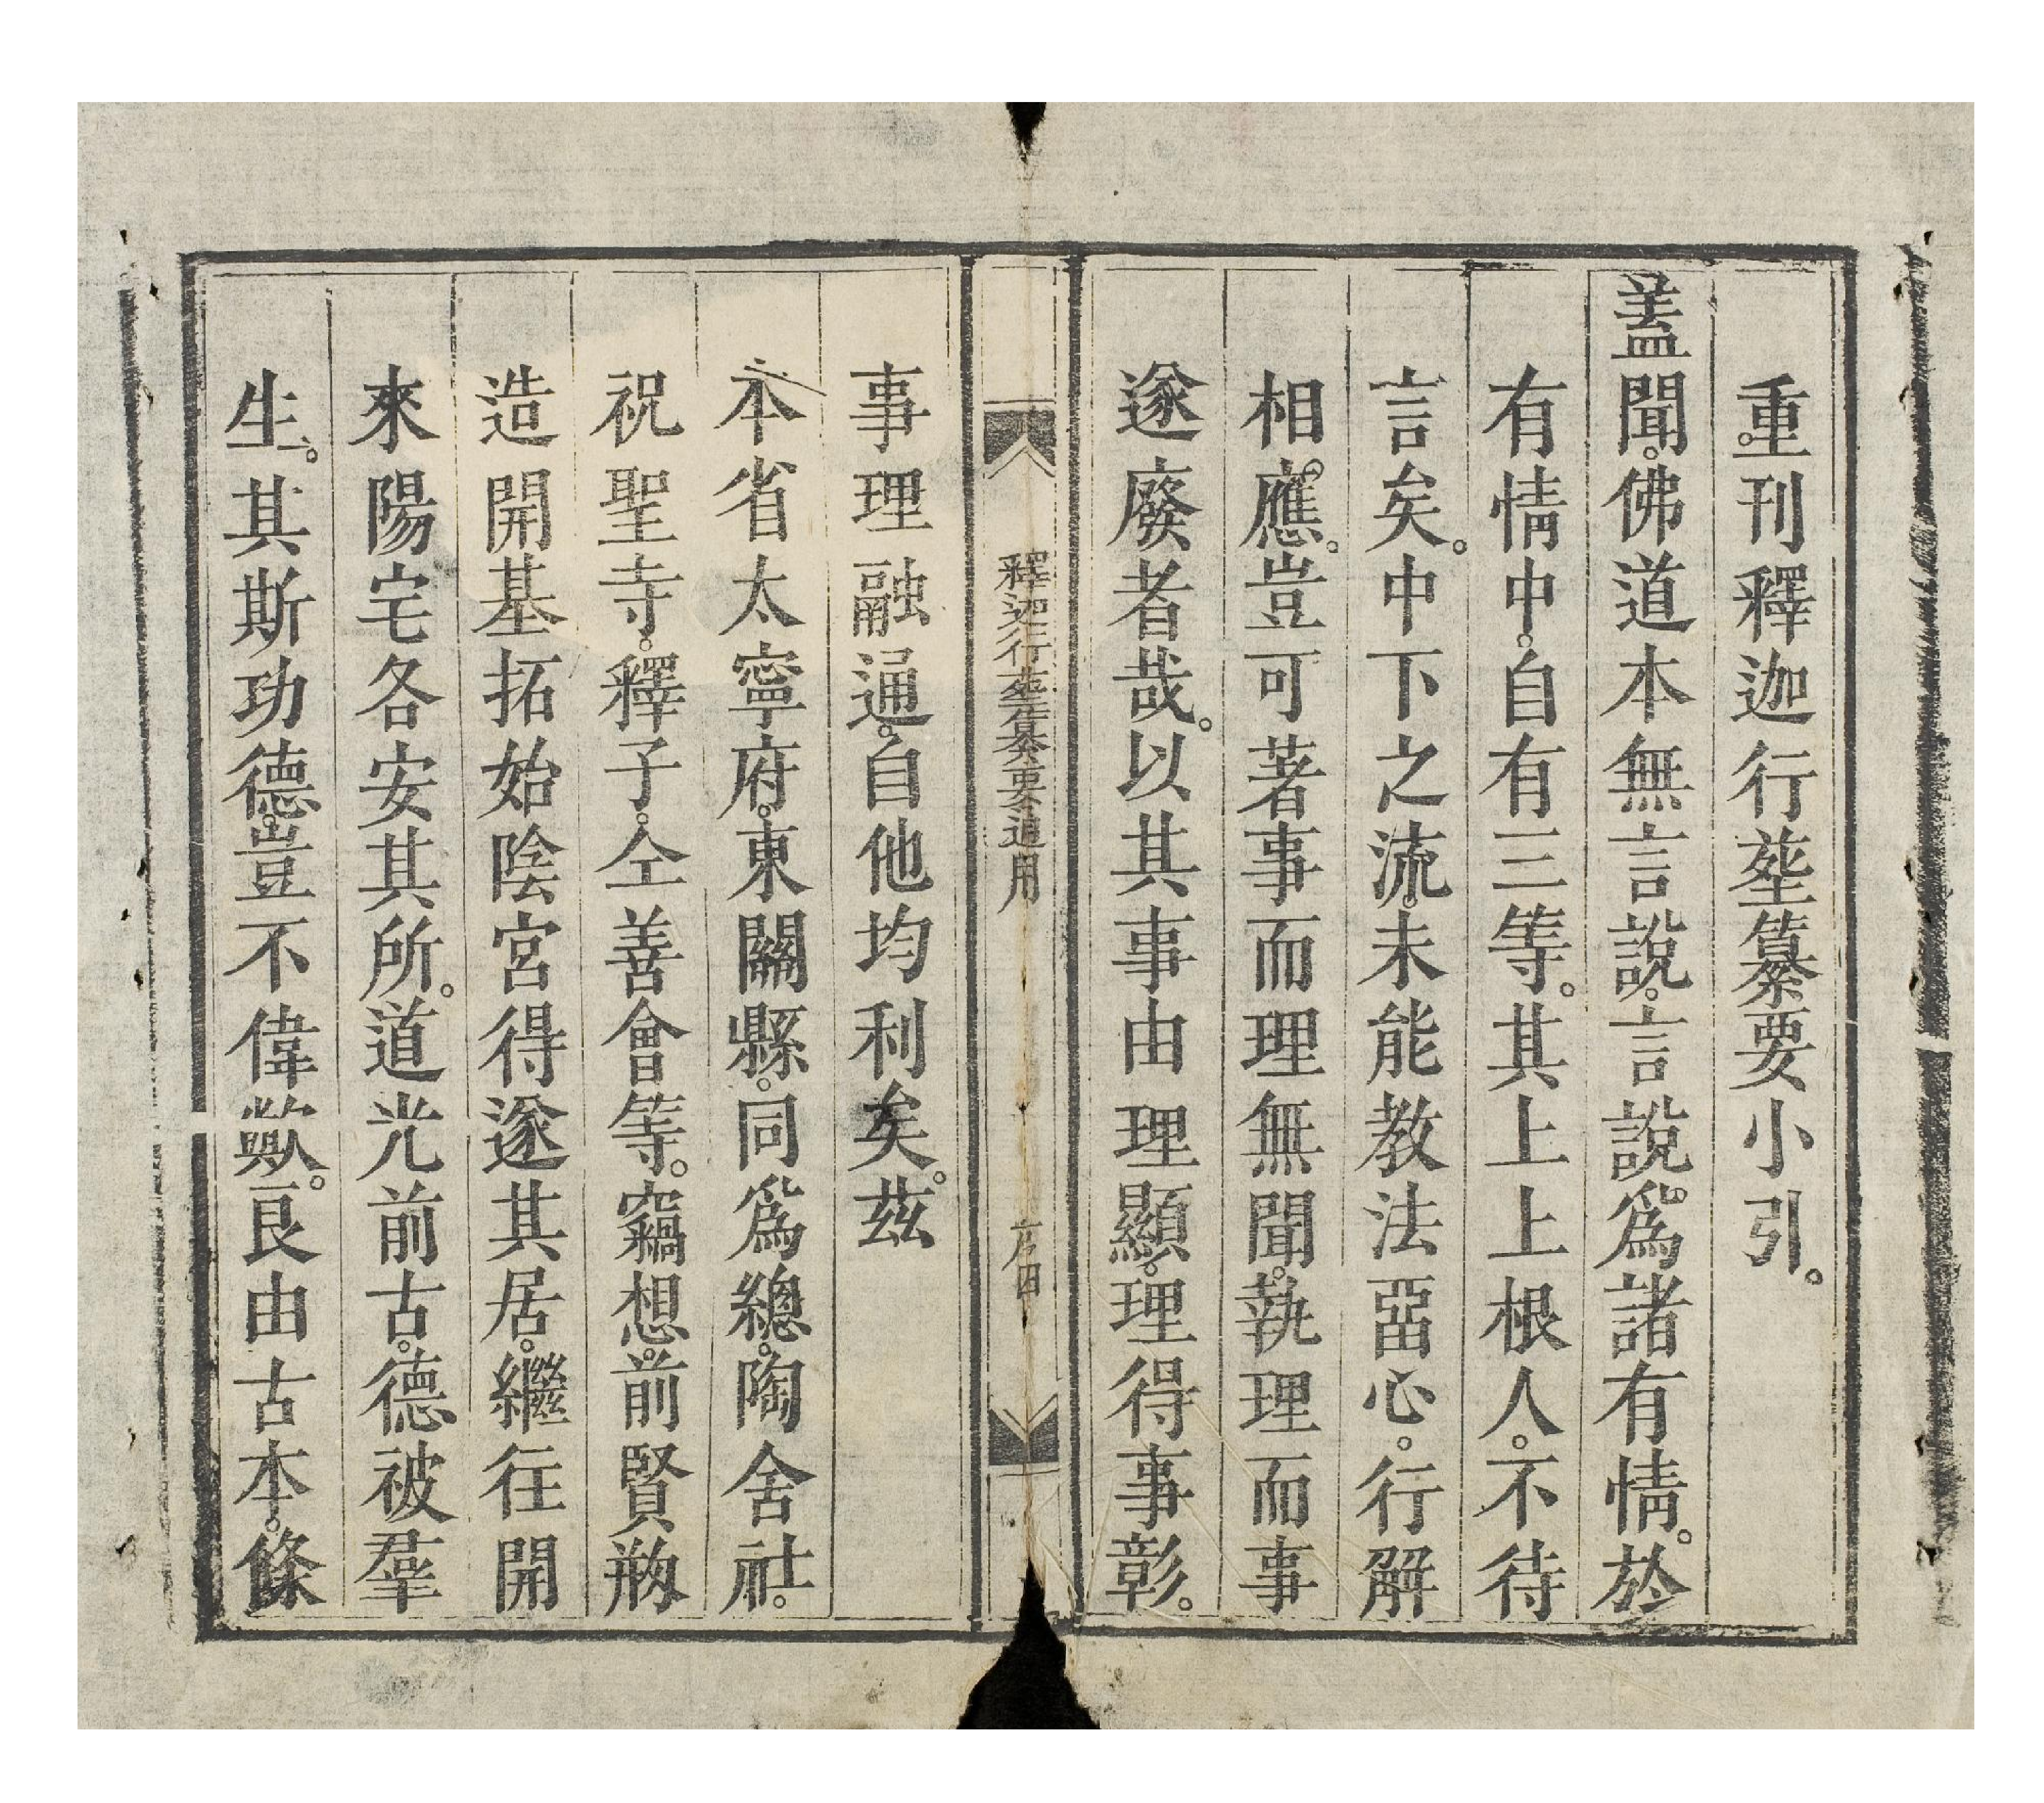 重刊釋迦行塟纂要小引。
葢聞。佛道本無言說。言說。爲諸有情。於
有情中。自有三等。其上上根人。不待
言矣。中下之流。未能教法㽞心。行解
相。應。豈可著事而理無聞。執理而事
遂廢者哉。以其事由理顯。理得事彰。
釋迦行塟纂要通用
序四
事理融通。自他均利矣。茲
本省太寧府。東關縣。同爲總。陶舍社。
祝聖寺。釋子。仝善會等。竊想。前賢剏
造開基拓始陰宮得遂其居。繼往開
來陽宅各安其所。道光前古。德被羣
生。其斯功德。豈不偉歟。良由古本。條